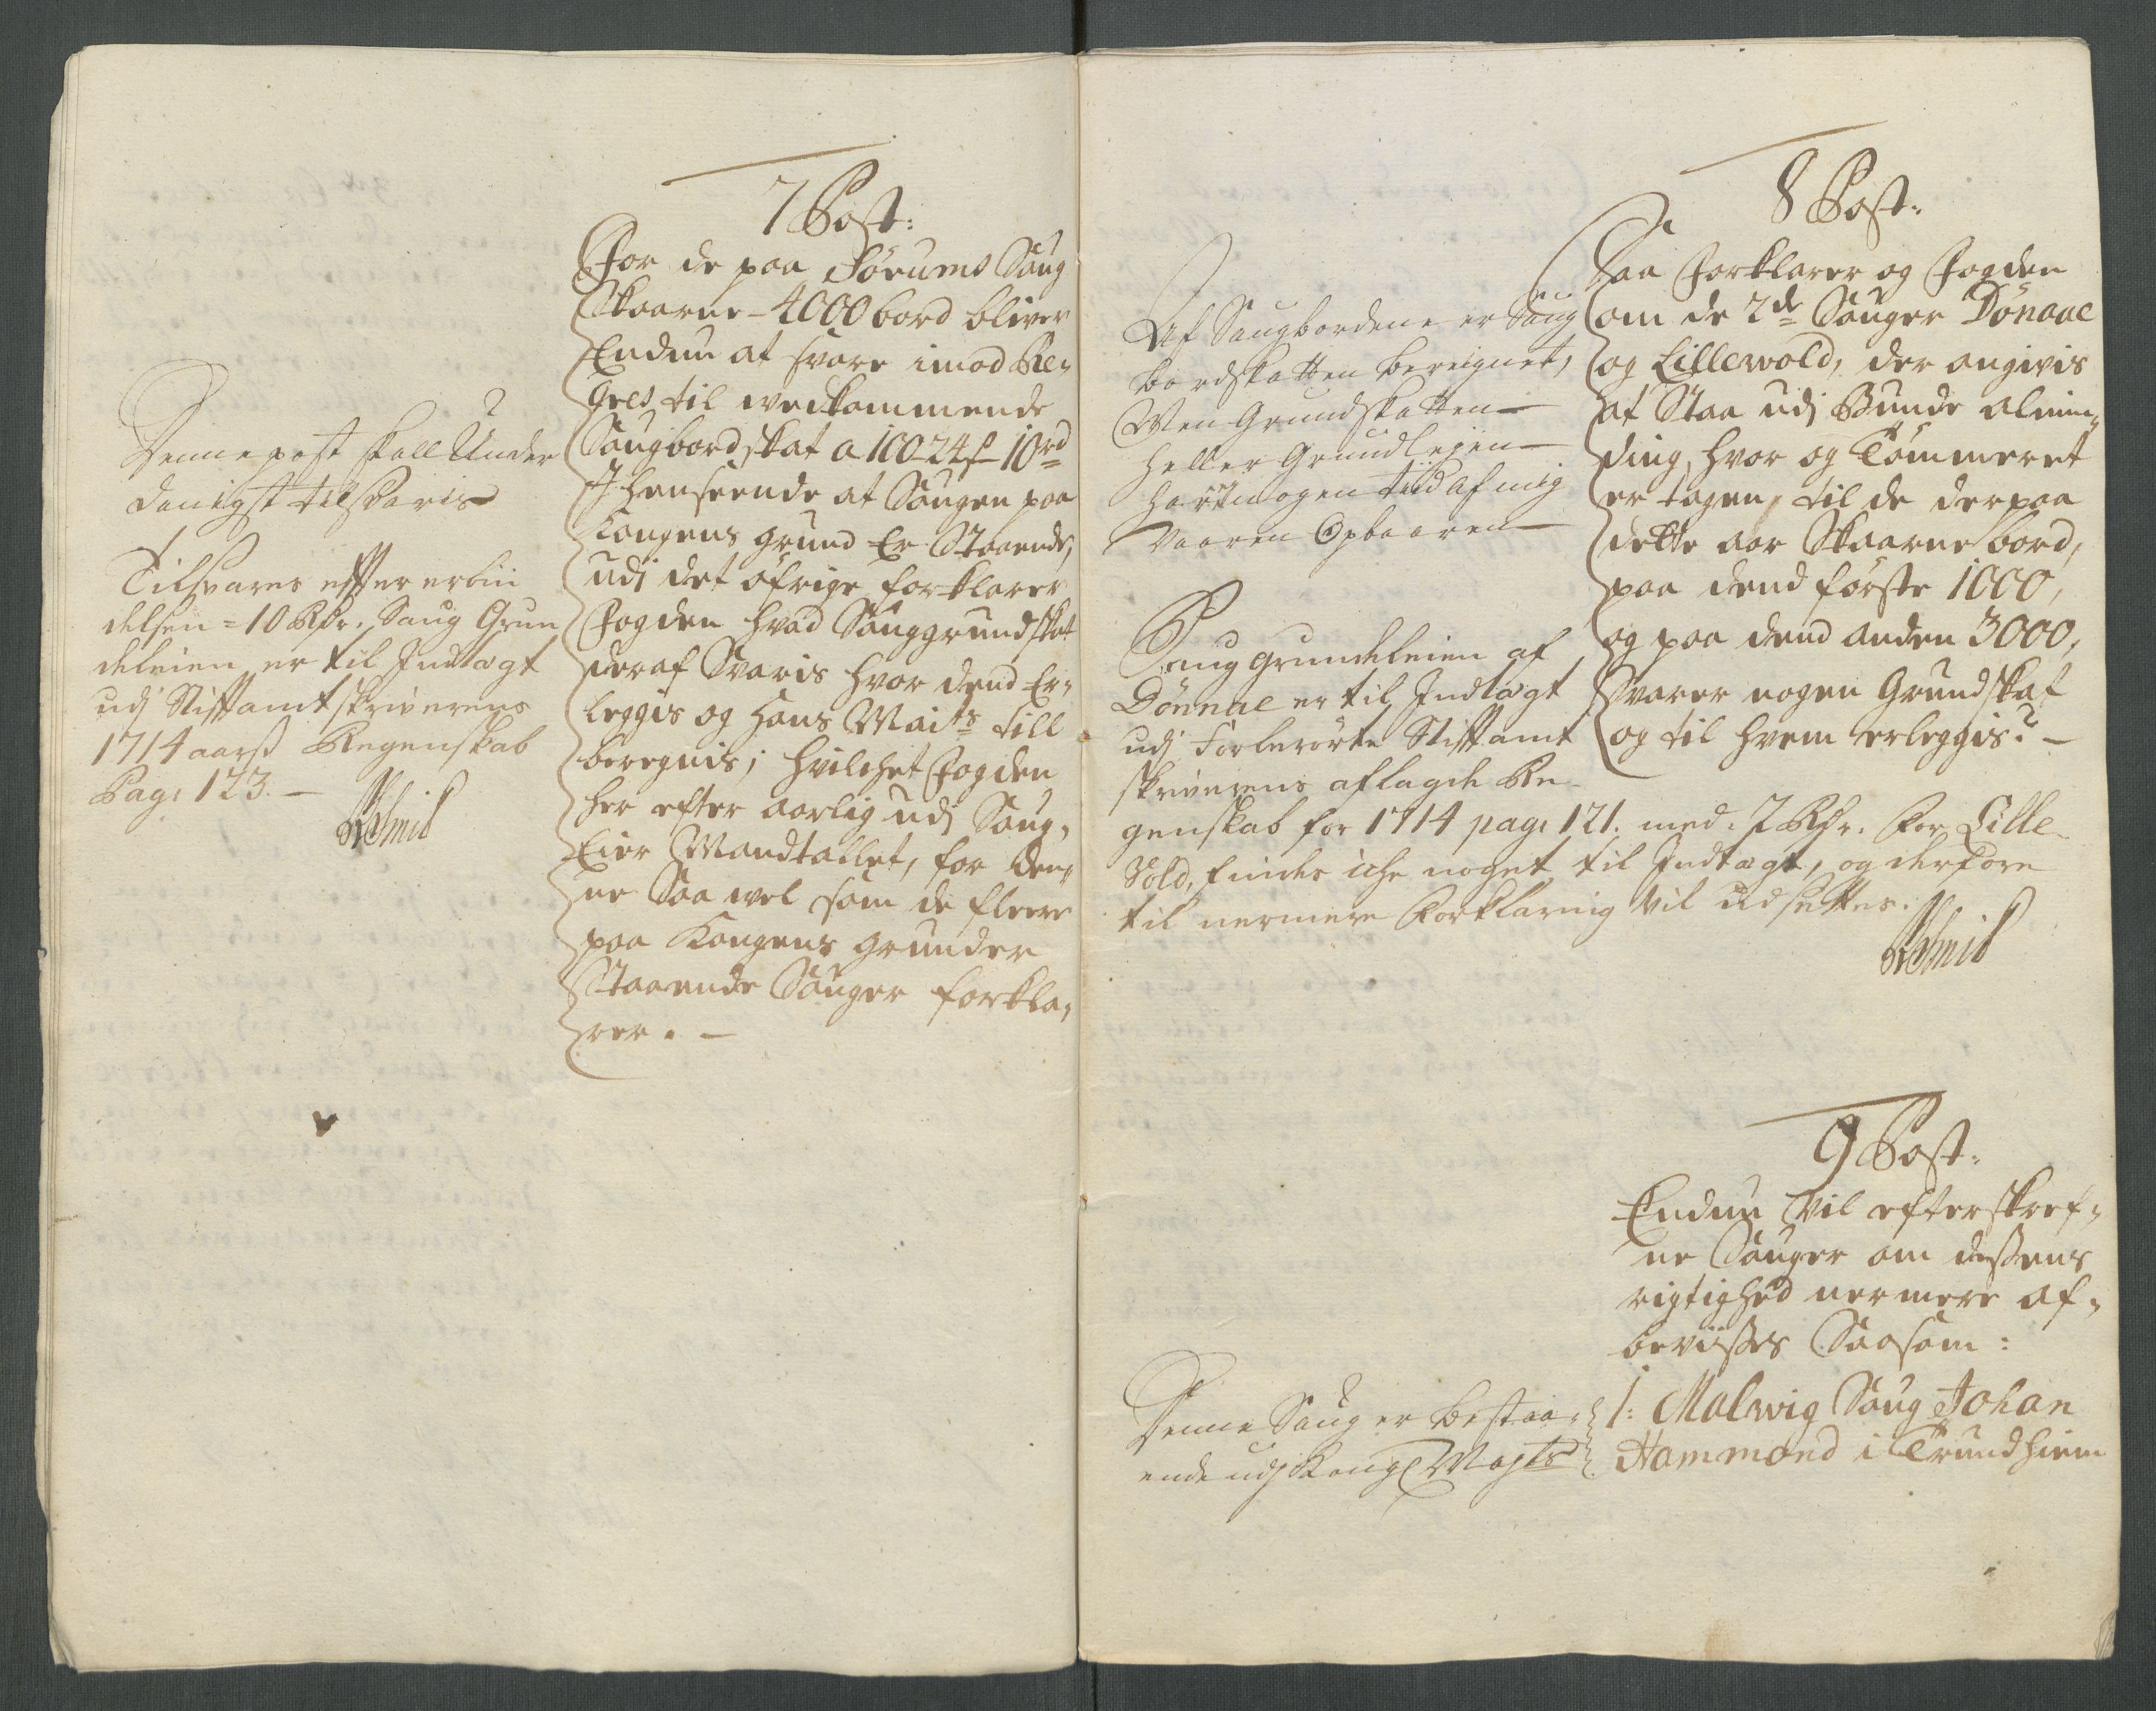 7 Post:
For de paa Sörums Saug
Skaarne - 4000 bord bliver
Endnu at svare imod Re-
gres til wedkommende
Saugbordskat a 100 24 s - 10 rd
J henseende at Saugen paa
Kongens grund Er Staaende,
udj det öfrige forklarer
Fogden hvad Sauggrundskat
deraf Svaris hvor dend Er-
leggis og Hans Maits till
beregnis; hvilchet Fogden
her efter aarlig udj Saug-
Eier Mandtallet, for den-
ne Saa wel som de fleere
paa Kongens grunder
Staaende Sauger forkla-
rer. -
Denne post skall Under
danigst tilsvaris
Tilsvares effter erbiu
delsen = 10 Rdr. Saug Grun
deleien er til Indtægt
udj Stifftamtskriverens
1714 aarß Regenskab
Pag: 123. -
8 Post:
Saa forklarer og Fogden
om de 2de Sauger Dönaae
og Lillewold, der angivis
at Staa udj Bunde almin-
ding, hvor og Tömmeret
er tagen, til de derpaa
dette aar Skaarne bord,
paa dend förste 1000,
og paa dend anden 3000,
Svarer nogen Grundskat
og til hvem erleggis? -
Af Saugbordene er Saug
bordskatten bereignet,
Men Grundskatten
heller Grundlejen
har ingen tiid af mig
vaaren Opbaaren
Saug grundeleien af
Dönnae er til Indtægt
udj forberörte Stifftamt
skriverens aflagde Re-
genskab for 1714 pag: 121. med. 7 Rdr. For Lille-
Vold, findes iche noget til Indtægt, og derfore
til nermere Forklaring vil udsettes.
9 Post:
Endnu vil efterskref-
ne Sauger om deßens
rigtighed nermere af-
beviißes Saasom:
1: Malwig Saug Johan
Hammond i Trundhiem
Denne Saug er bestaa-
ende udj Kongl Mayts